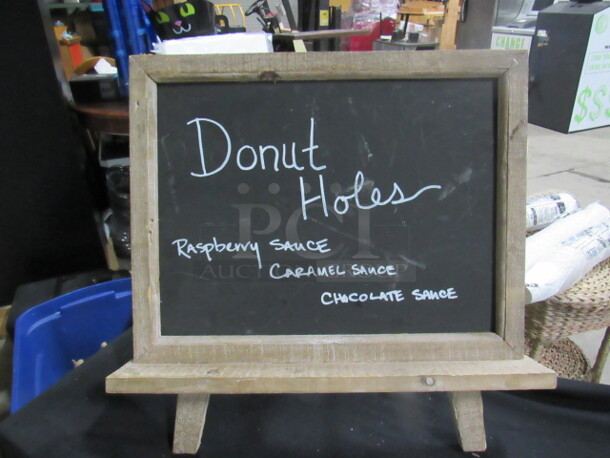 Donut
Holes
Raspberry Sauce
Caramel Sauce
Chocolate Sauce
PCI
CHANGE
$$$